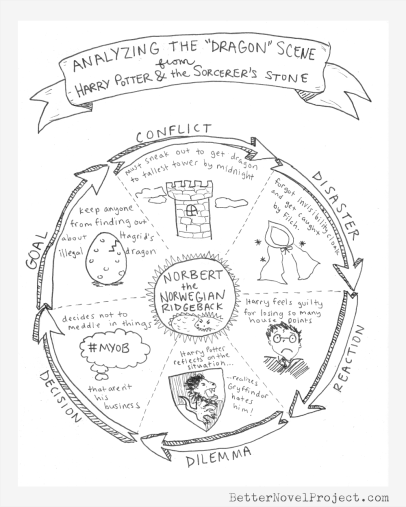 ANALYZING THE "DRAGON" SCENE
from
HARRY POTTER & the SORCERER'S STONE
CONFLICT
must sneak out to get dragon
to tallest tower by midnight
DISASTER
forgot invisibility cloak
and get caught
by Filch.
REACTION
Harry feels guilty
for losing so many
house points
DILEMMA
Harry Potter
reflects on the
situation...
...realizes
Gryffindor
hates
him!
DECISION
decides not to
meddle in things
#MYOB
that aren't
his
business
GOAL
keep anyone
from finding out
about Hagrid's
illegal dragon
NORBERT
the
NORWEGIAN
RIDGEBACK
BetterNovelProject.com